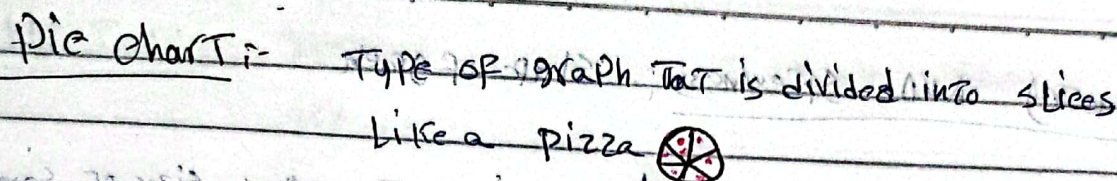 Pie Chart :- Type of graph TaT is divided into slices
Like a pizza